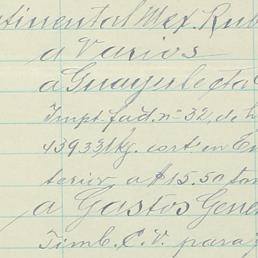 tinental Mex. Rub
a Varios
a Guayule cta
Impt. fact. nº 32, de h
43933 kg. cort. en En
terior, a $15.50 ton
a Gastos Gene
Timb. C.V. para